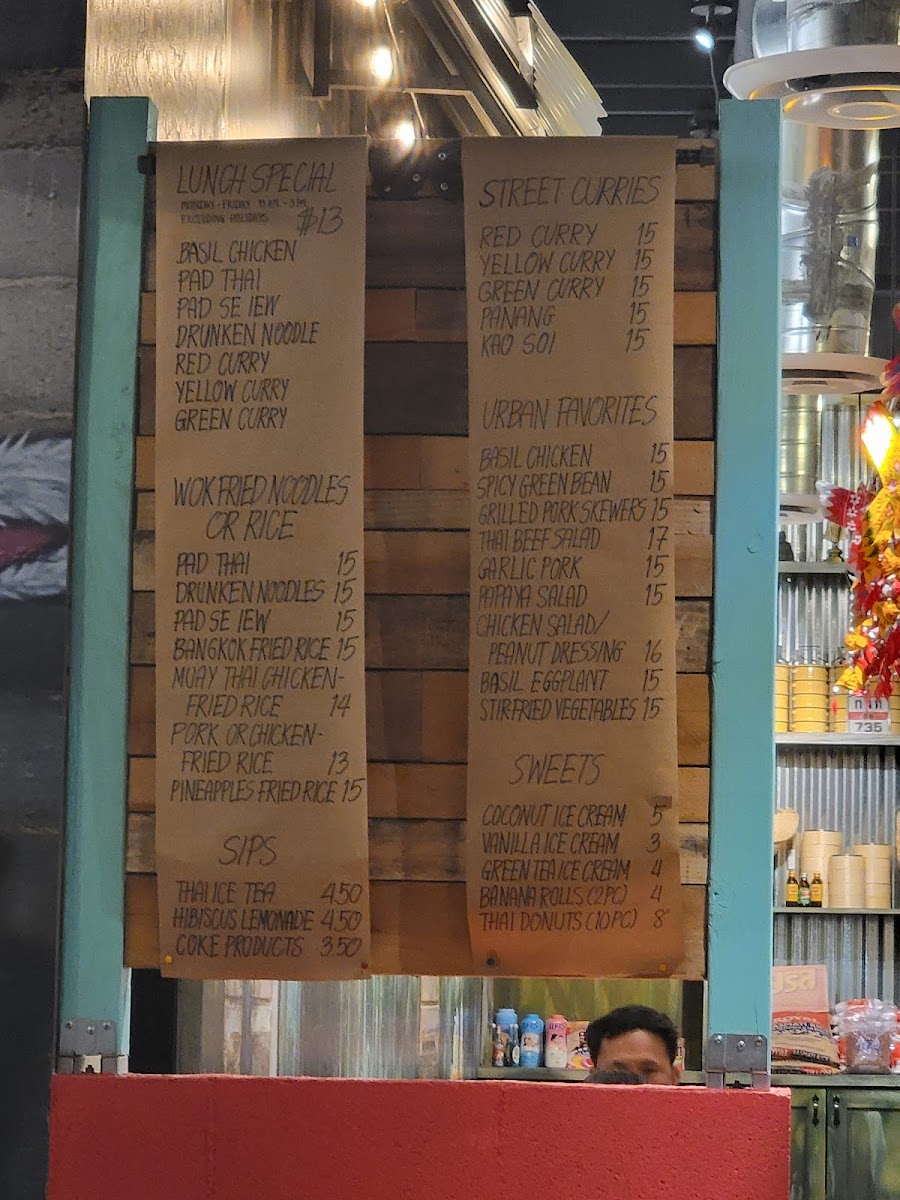 LUNCH SPECIAL
MONDAY - FRIDAY 11 AM - 3 PM
EXCLUDING HOLIDAYS
$13
BASIL CHICKEN
PAD THAI
PAD SE IEW
DRUNKEN NOODLE
RED CURRY
YELLOW CURRY
GREEN CURRY
WOK FRIED NOODLES
OR RICE
PAD THAI 15
DRUNKEN NOODLES 15
PAD SE IEW 15
BANGKOK FRIED RICE 15
MUAY THAI CHICKEN-
FRIED RICE 14
PORK OR CHICKEN-
FRIED RICE 13
PINEAPPLES FRIED RICE 15
SIPS
THAI ICE TEA 4.50
HIBISCUS LEMONADE 4.50
COKE PRODUCTS 3.50
STREET CURRIES
RED CURRY 15
YELLOW CURRY 15
GREEN CURRY 15
PANANG 15
KAO SOI 15
URBAN FAVORITES
BASIL CHICKEN 15
SPICY GREEN BEAN 15
GRILLED PORK SKEWERS 15
THAI BEEF SALAD 17
GARLIC PORK 15
PAPAYA SALAD 15
CHICKEN SALAD/
PEANUT DRESSING 16
BASIL EGGPLANT 15
STIR FRIED VEGETABLES 15
SWEETS
COCONUT ICE CREAM 5
VANILLA ICE CREAM 3
GREEN TEA ICE CREAM 4
BANANA ROLLS (2PC) 4
THAI DONUTS (10 PC) 8
735